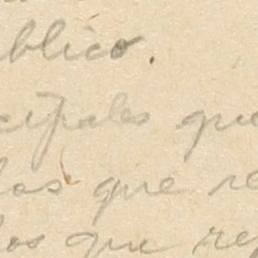 blico.
cipales que
las que re
los que rep